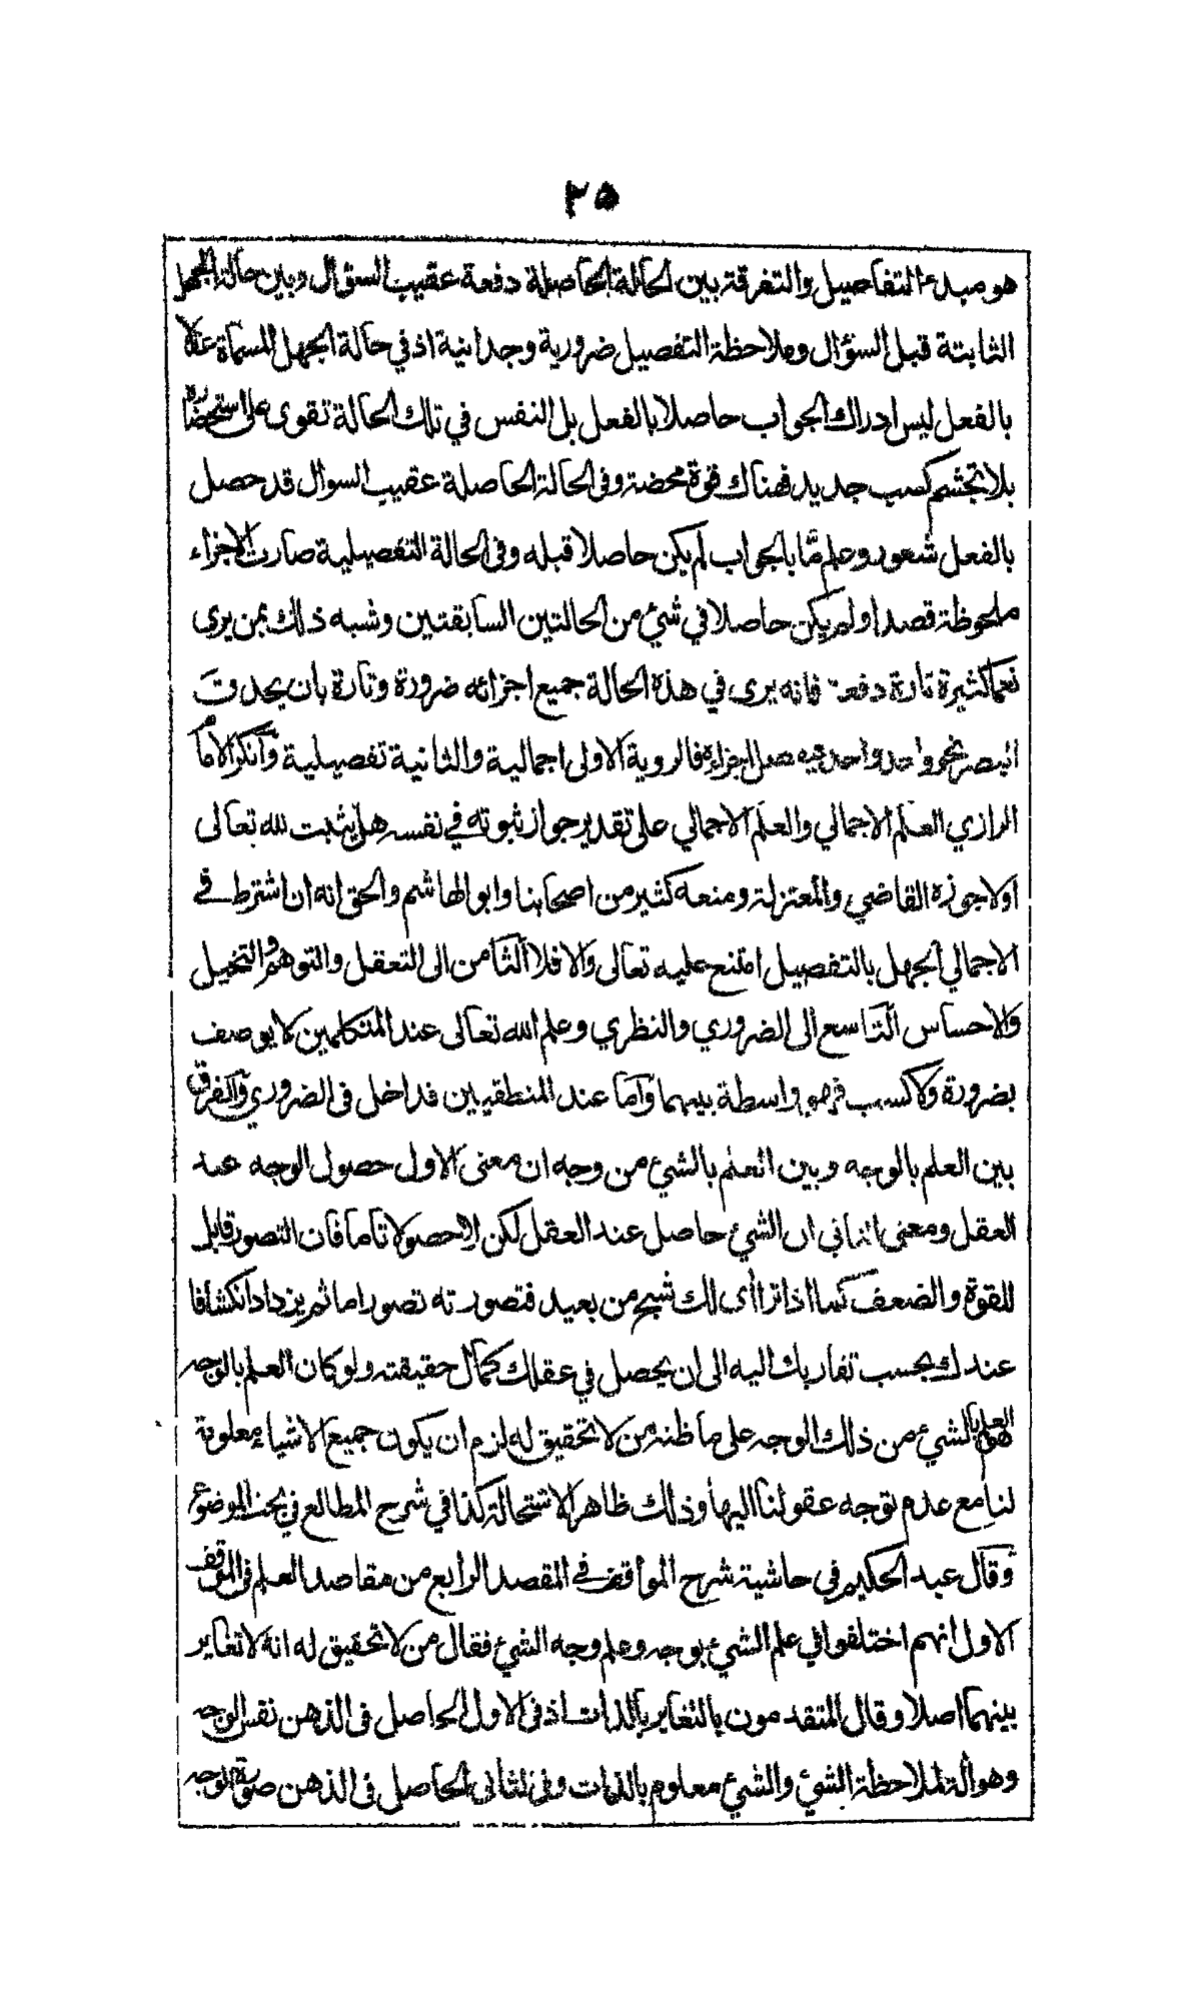 ٢٥
هو مبدء التفاصيل والتفرقة بين الحالة الحاصلة دفعة عقيب السؤال وبين حالة الجهل
الثابتة قبل السؤال وملاحظة التفصيل ضرورية وجدانية اذ في حالة الجهل المسماة عقلا
بالفعل ليس ادراك الجواب حاصلا بالفعل بل النفس في تلك الحالة تقوى على استحضاره
بلا تجشم كسب جديد فهناك قوة محضة وفى الحالة الحاصلة عقيب السوال قد حصل
بالفعل شعور وعلم مّا بالجواب لم يكن حاصلا قبله وفى الحالة التفصيلية صارت الاجزاء
ملحوظة قصدا ولم يكن حاصلا في شئ من الحالتين السابقتين وشبه ذلك بمن يرى
نعما كثيرة تارة دفعة فانه يرى في هذه الحالة جميع اجزائه ضرورة وتارة بان يحدق
البصر نحو واحد واحد اجزاءه فالروية الاولى اجمالية والثانية تفصيلية وآنكر الامام
الرازي العلم الاجمالي والعلم الاجمالي على تقدير جواز ثبوته في نفسه هل يثبت لله تعالى
اولا جوزه القاضي والمعتزلة ومنعه كثير من اصحابنا وابو الهاشم والحق انه ان اشترط في
الاجمالي الجهل بالتفصيل امتنع عليه تعالى والا فلا الثامن الى التعقل والتوهم والتخيل
والاحساس التاسع الى الضروري والنظري وعلم الله تعالى عند المتكلمين لا يوصف
بضرورة ولا كسب فهو واسطة بينهما وآما عند المنطقيين فداخل فى الضروري والفرق
بين العلم بالوجه وبين العلم بالشئ من وجه ان معنى الاول حصول الوجه عند
العقل ومعنى الثاني ان الشئ حاصل عند العقل لكن لا حصولا تاما فان التصور قابل
للقوة والضعف كما اذا ترا أى لك شبح من بعيد فتصورته تصورا ما ثم يزداد انكشافا
عندك بحسب تقاربك اليه الى ان يحصل في عقلك كمال حقيقته ولو كان العلم بالوجه
هو العلم بالشئ من ذلك الوجه على ما ظنه من لا تحقيق له لزم ان يكون جميع الاشياء معلومة
لنا مع عدم توجه عقولنا اليها وذلك ظاهر الاستحالة كذا في شرح المطالع في بحث الموضوع
وقال عبد الحكيم في حاشية شرح المواقف في المقصد الرابع من مقاصد العلم فى الموقف
الاول انهم اختلفوا في علم الشئ بوجه وعلم وجه الشئ فقال من لا تحقيق له انه لا تغاير
بينهما اصلا وقال المتقدمون بالتغاير بالذات اذ فى الاول الحاصل فى الذهن نفس الوجه
وهو آلة لملاحظة الشئ والشئ معلوم بالذات وفى الثاني الحاصل فى الذهن صورة الوجه